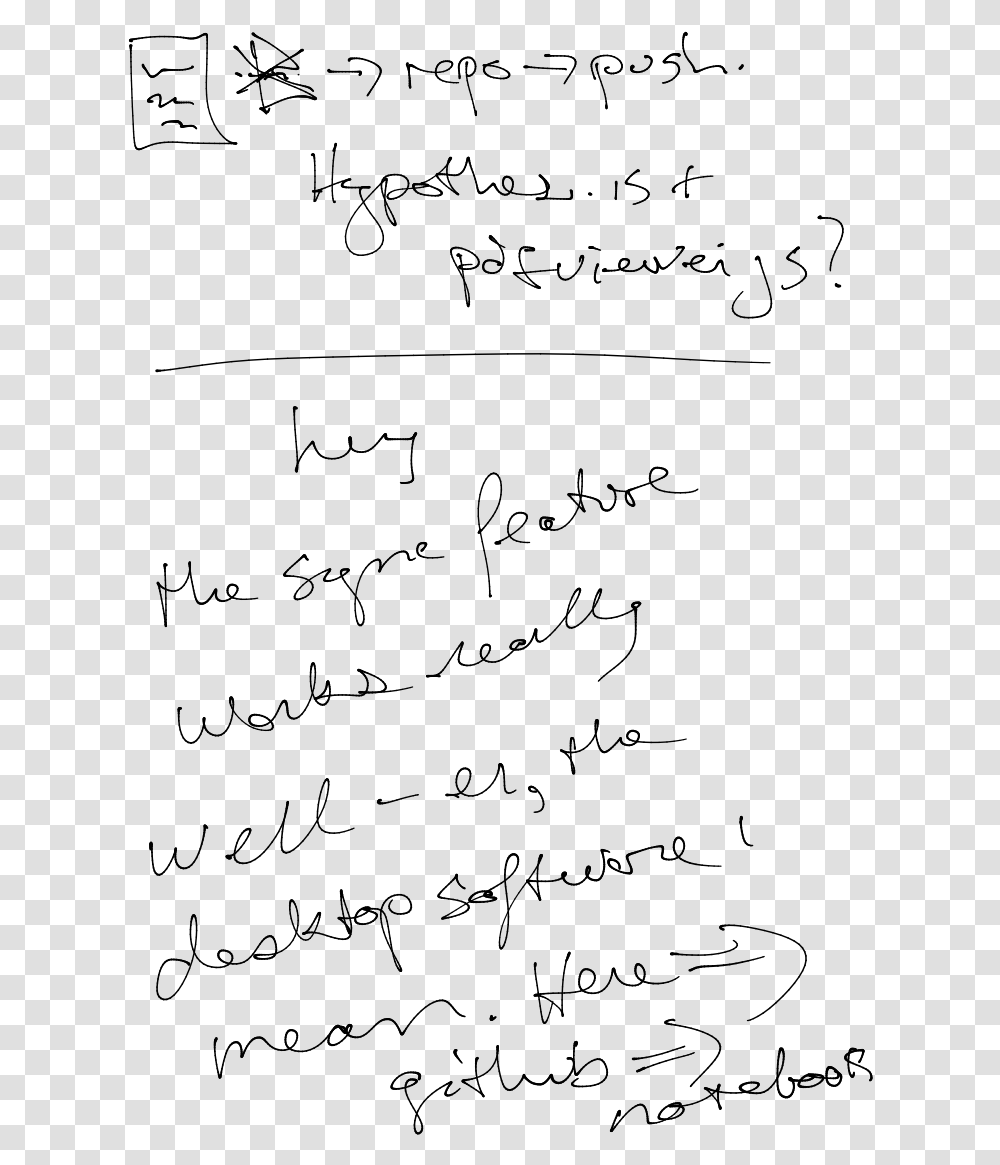 → repo → push.
Hypothes.is +
pdfviewer js?
hey
the sync feature
works really
well - er, the
desktop software I
mean. Here ⇒
github ⇒
notebook